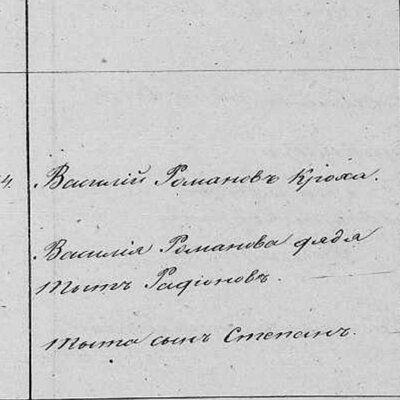 4. Василій Романовъ Кроха.
Василія Романова дядя
Тытъ Радіоновъ.
Тыта сынъ Степанъ.